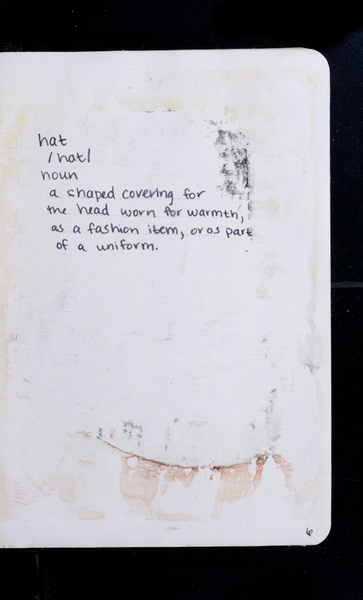 hat
/hat/
noun
a shaped covering for
the head worn for warmth,
as a fashion item, or as part
of a uniform.
6